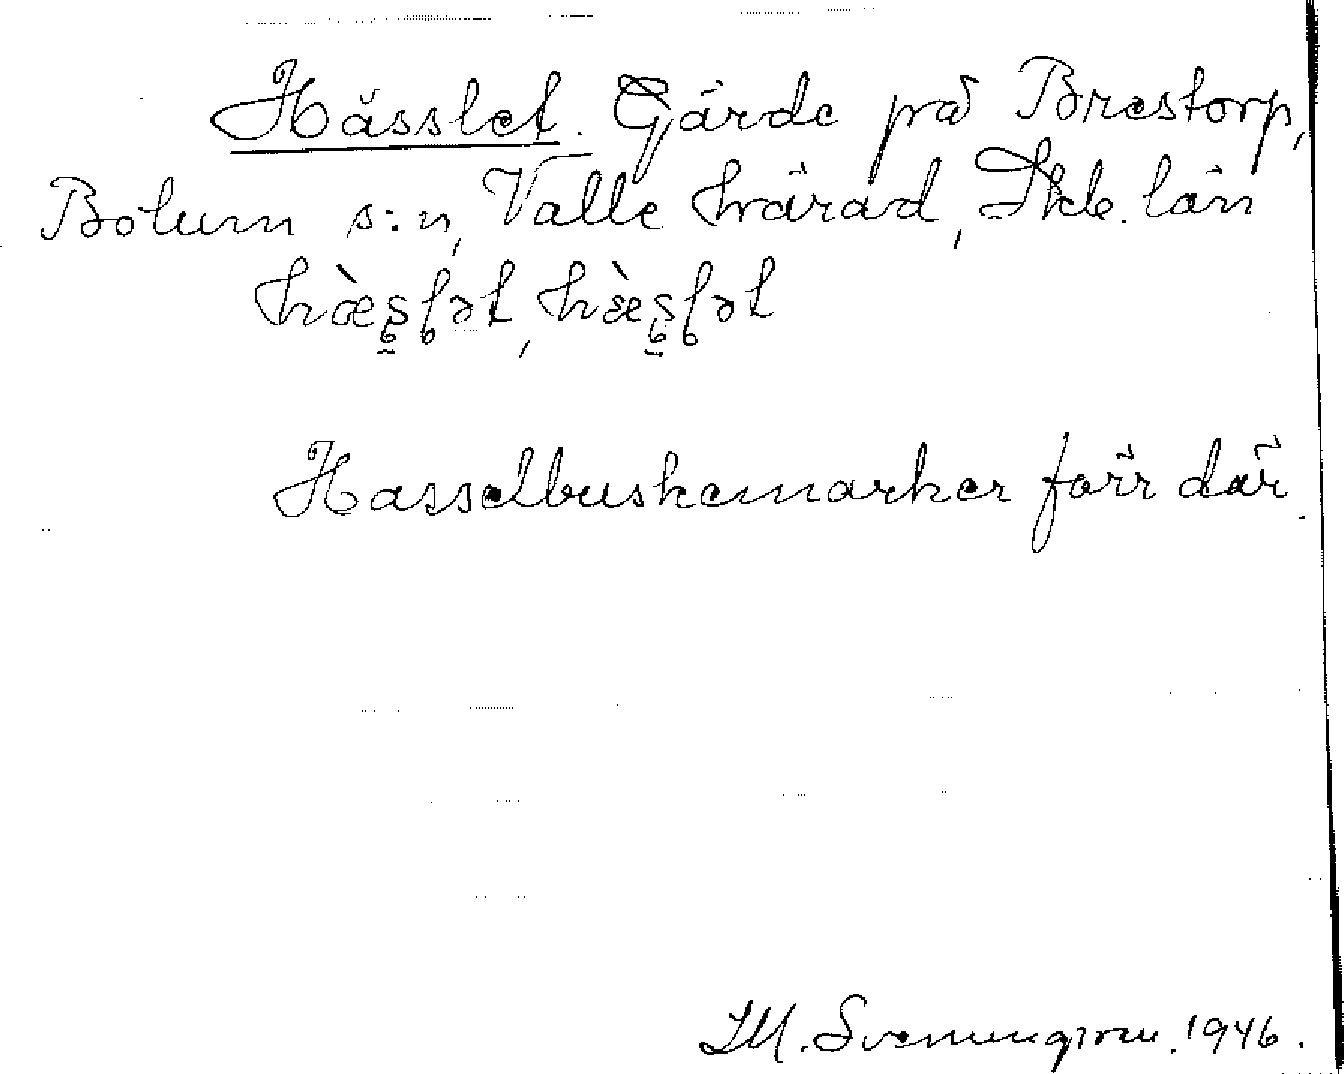 Hässlet. Gärde på Brestorp,
Bolum s:n, Valle härad, Skb. län
hæ̀s̬ʂlət, hæ̀s̬ʂlət
Hasselbuskemarker förr där.
I.M. Svenungsson. 1946.